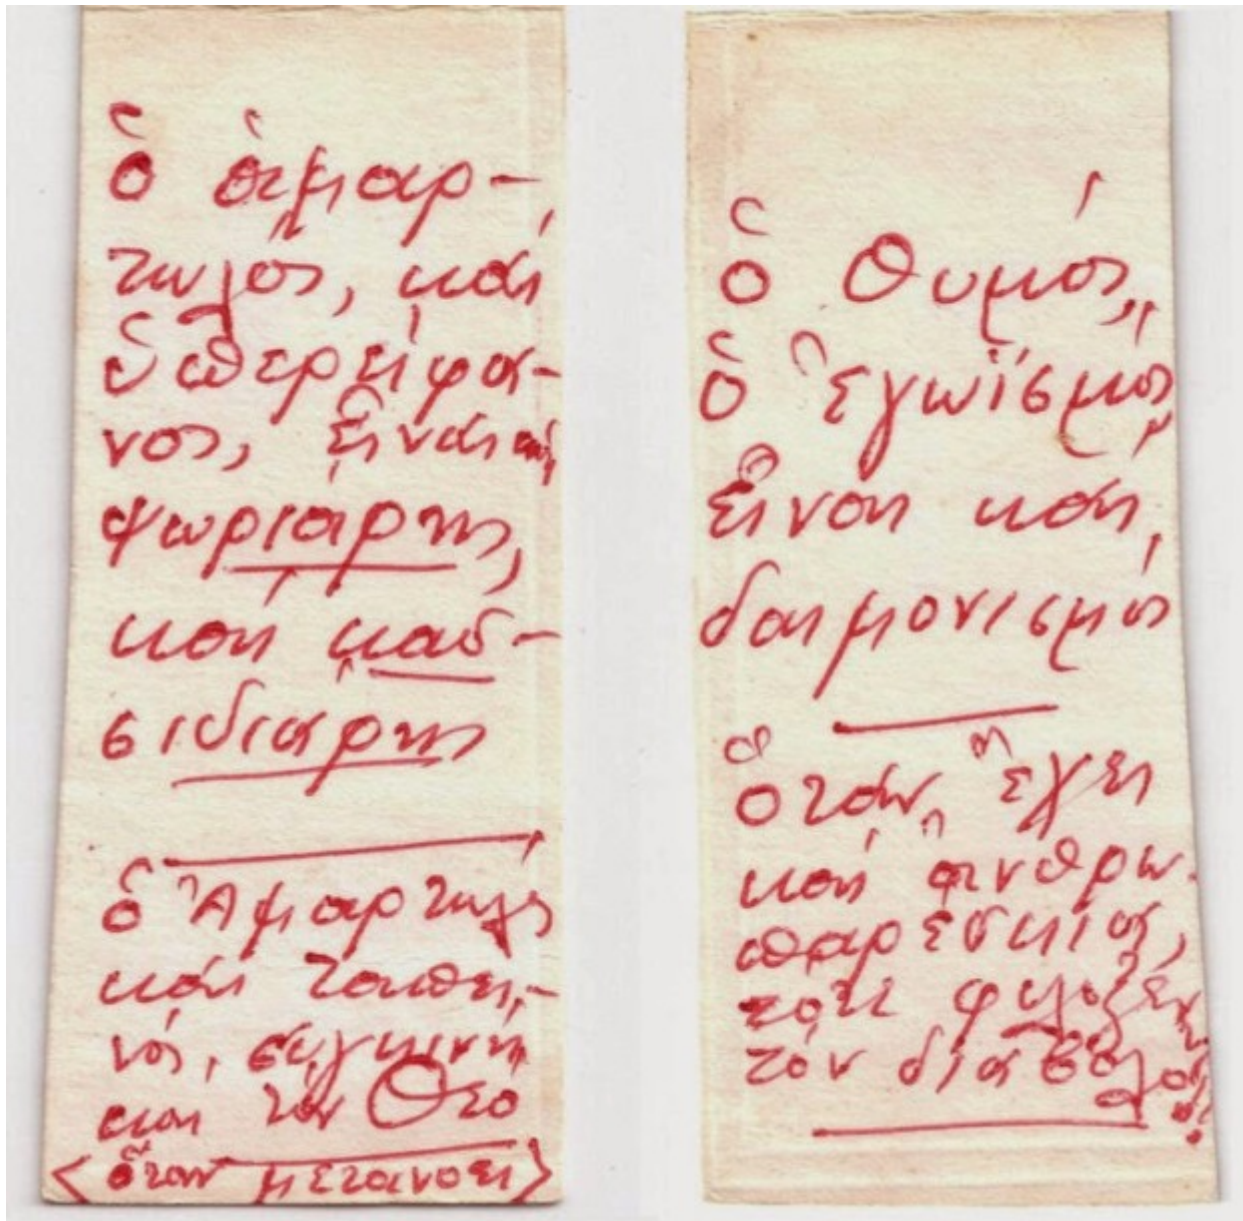 ὁ ἁμαρ-
τωλός, καί
ὑπερείφα-
νος, εἶναι καί
ψωριάρης,
καί κασ-
σιδιάρης
ὁ Ἁμαρτωλός
καί ταπει-
νός, συγκινή
και τόν Θεό
<ὅταν μετανοεῖ>
ὁ θυμός,
ὁ ἐγωϊσμός
εἶναι καί
δαιμονισμός
ὅταν ἔχει
καί ἀνθρω-
παρέσκεια,
τότε φιλοξενεῖ
τόν διάβολο!